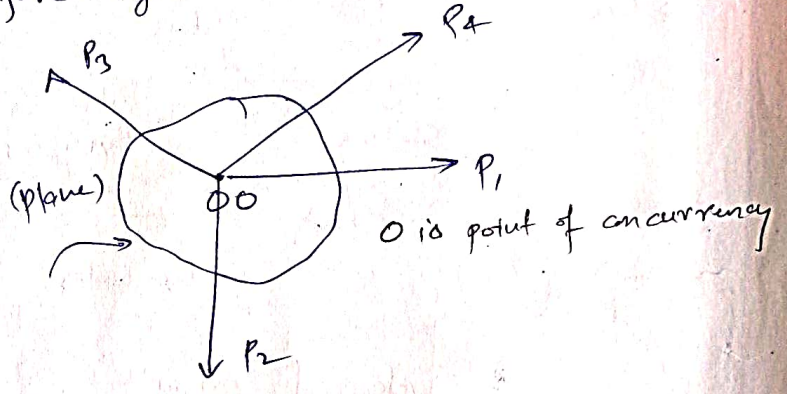 P4
P3
P1
(plane)
O O
O is point of concurrency
P2